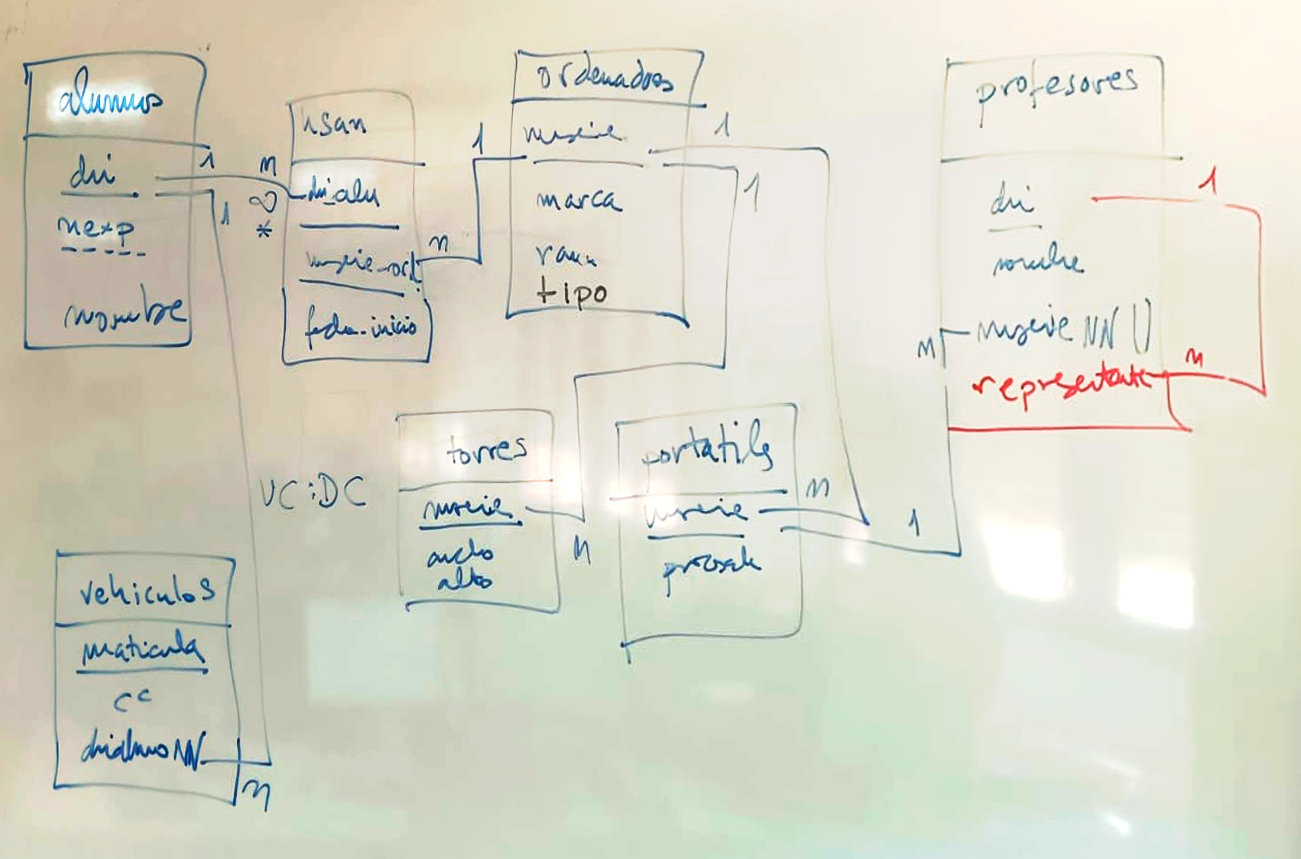 alumnos
dni
nexp
nombre
1
1
n
∞
*
usan
dni_alu
nserie_ord
fecha_inicio
n
1
ordenadores
nserie
marca
ram
tipo
1
1
profesores
dni
nombre
nserie NN U
representante
1
n
n
1
VC:DC
torres
nserie
ancho
alto
n
portatils
nserie
n
vehiculos
matricula
cc
dnialumno NN
n